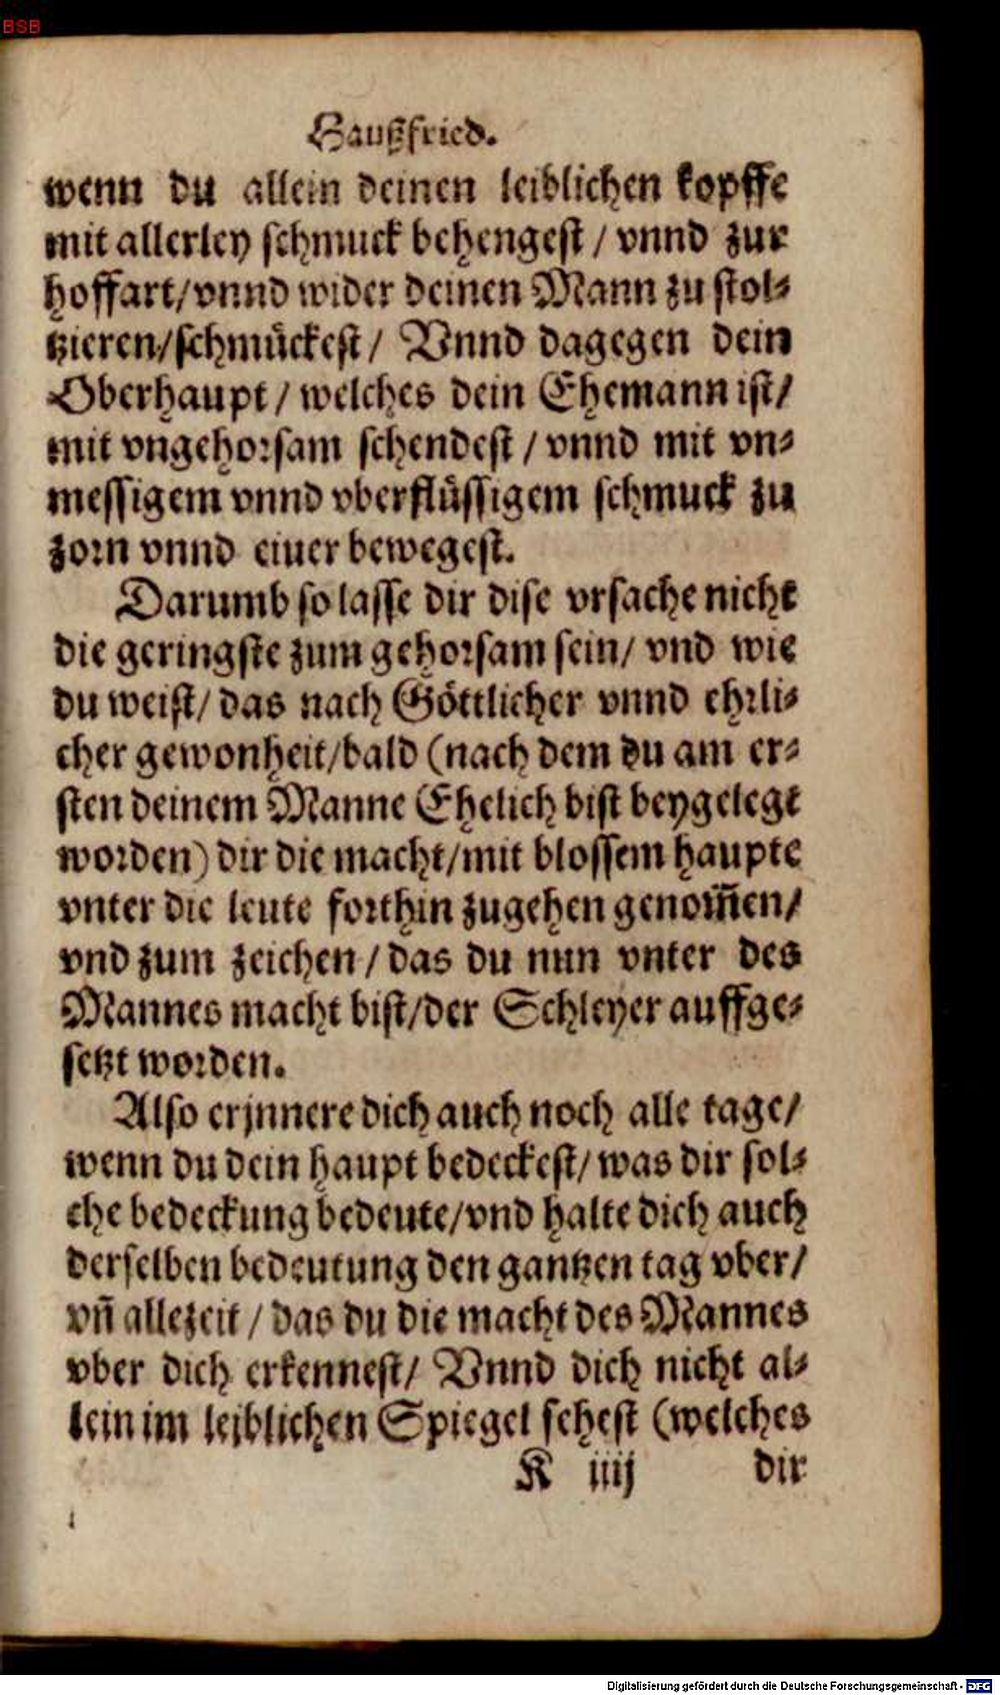 BSB
Haußfried.
wenn du allein deinen leiblichen kopffe
mit allerley schmuck behengest / vnnd zur
hoffart/vnnd wider deinen Mann zu stol⸗
tzieren/schmückest / Vnnd dagegen dein
Oberhaupt / welches dein Ehemann ist/
mit vngehorsam schendest / vnnd mit vn⸗
messigem vnnd vberflüssigem schmuck zu
zorn vnnd eiuer bewegest.
Darumb so lasse dir dise vrsache nicht
die geringste zum gehorsam sein/ vnd wie
du weist/ das nach Göttlicher vnnd ehrli⸗
cher gewonheit/bald (nach dem du am er⸗
sten deinem Manne Ehelich bist beygelegt
worden) dir die macht/mit blossem haupte
vnter die leute forthin zugehen genom̃en/
vnd zum zeichen / das du nun vnter des
Mannes macht bist/der Schleyer auffge⸗
setzt worden.
Also erjnnere dich auch noch alle tage/
wenn du dein haupt bedeckest/ was dir sol⸗
che bedeckung bedeute/vnd halte dich auch
derselben bedeutung den gantzen tag vber/
vñ allezeit / das du die macht des Mannes
vber dich erkennest/ Vnnd dich nicht al⸗
lein im leiblichen Spiegel sehest (welches
K iiij dir
Digitalisierung gefördert durch die Deutsche Forschungsgemeinschaft - DFG